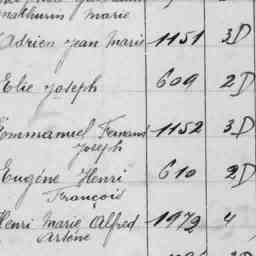 Mathurin Marie
Adrien Jean Marie 1151 3D
Elie Joseph 609 2D
Emmanuel Fernand 1152 3D
Joseph
Eugène Henri 610 2D
François
Henri Marie Alfred 1972 4
Arsène